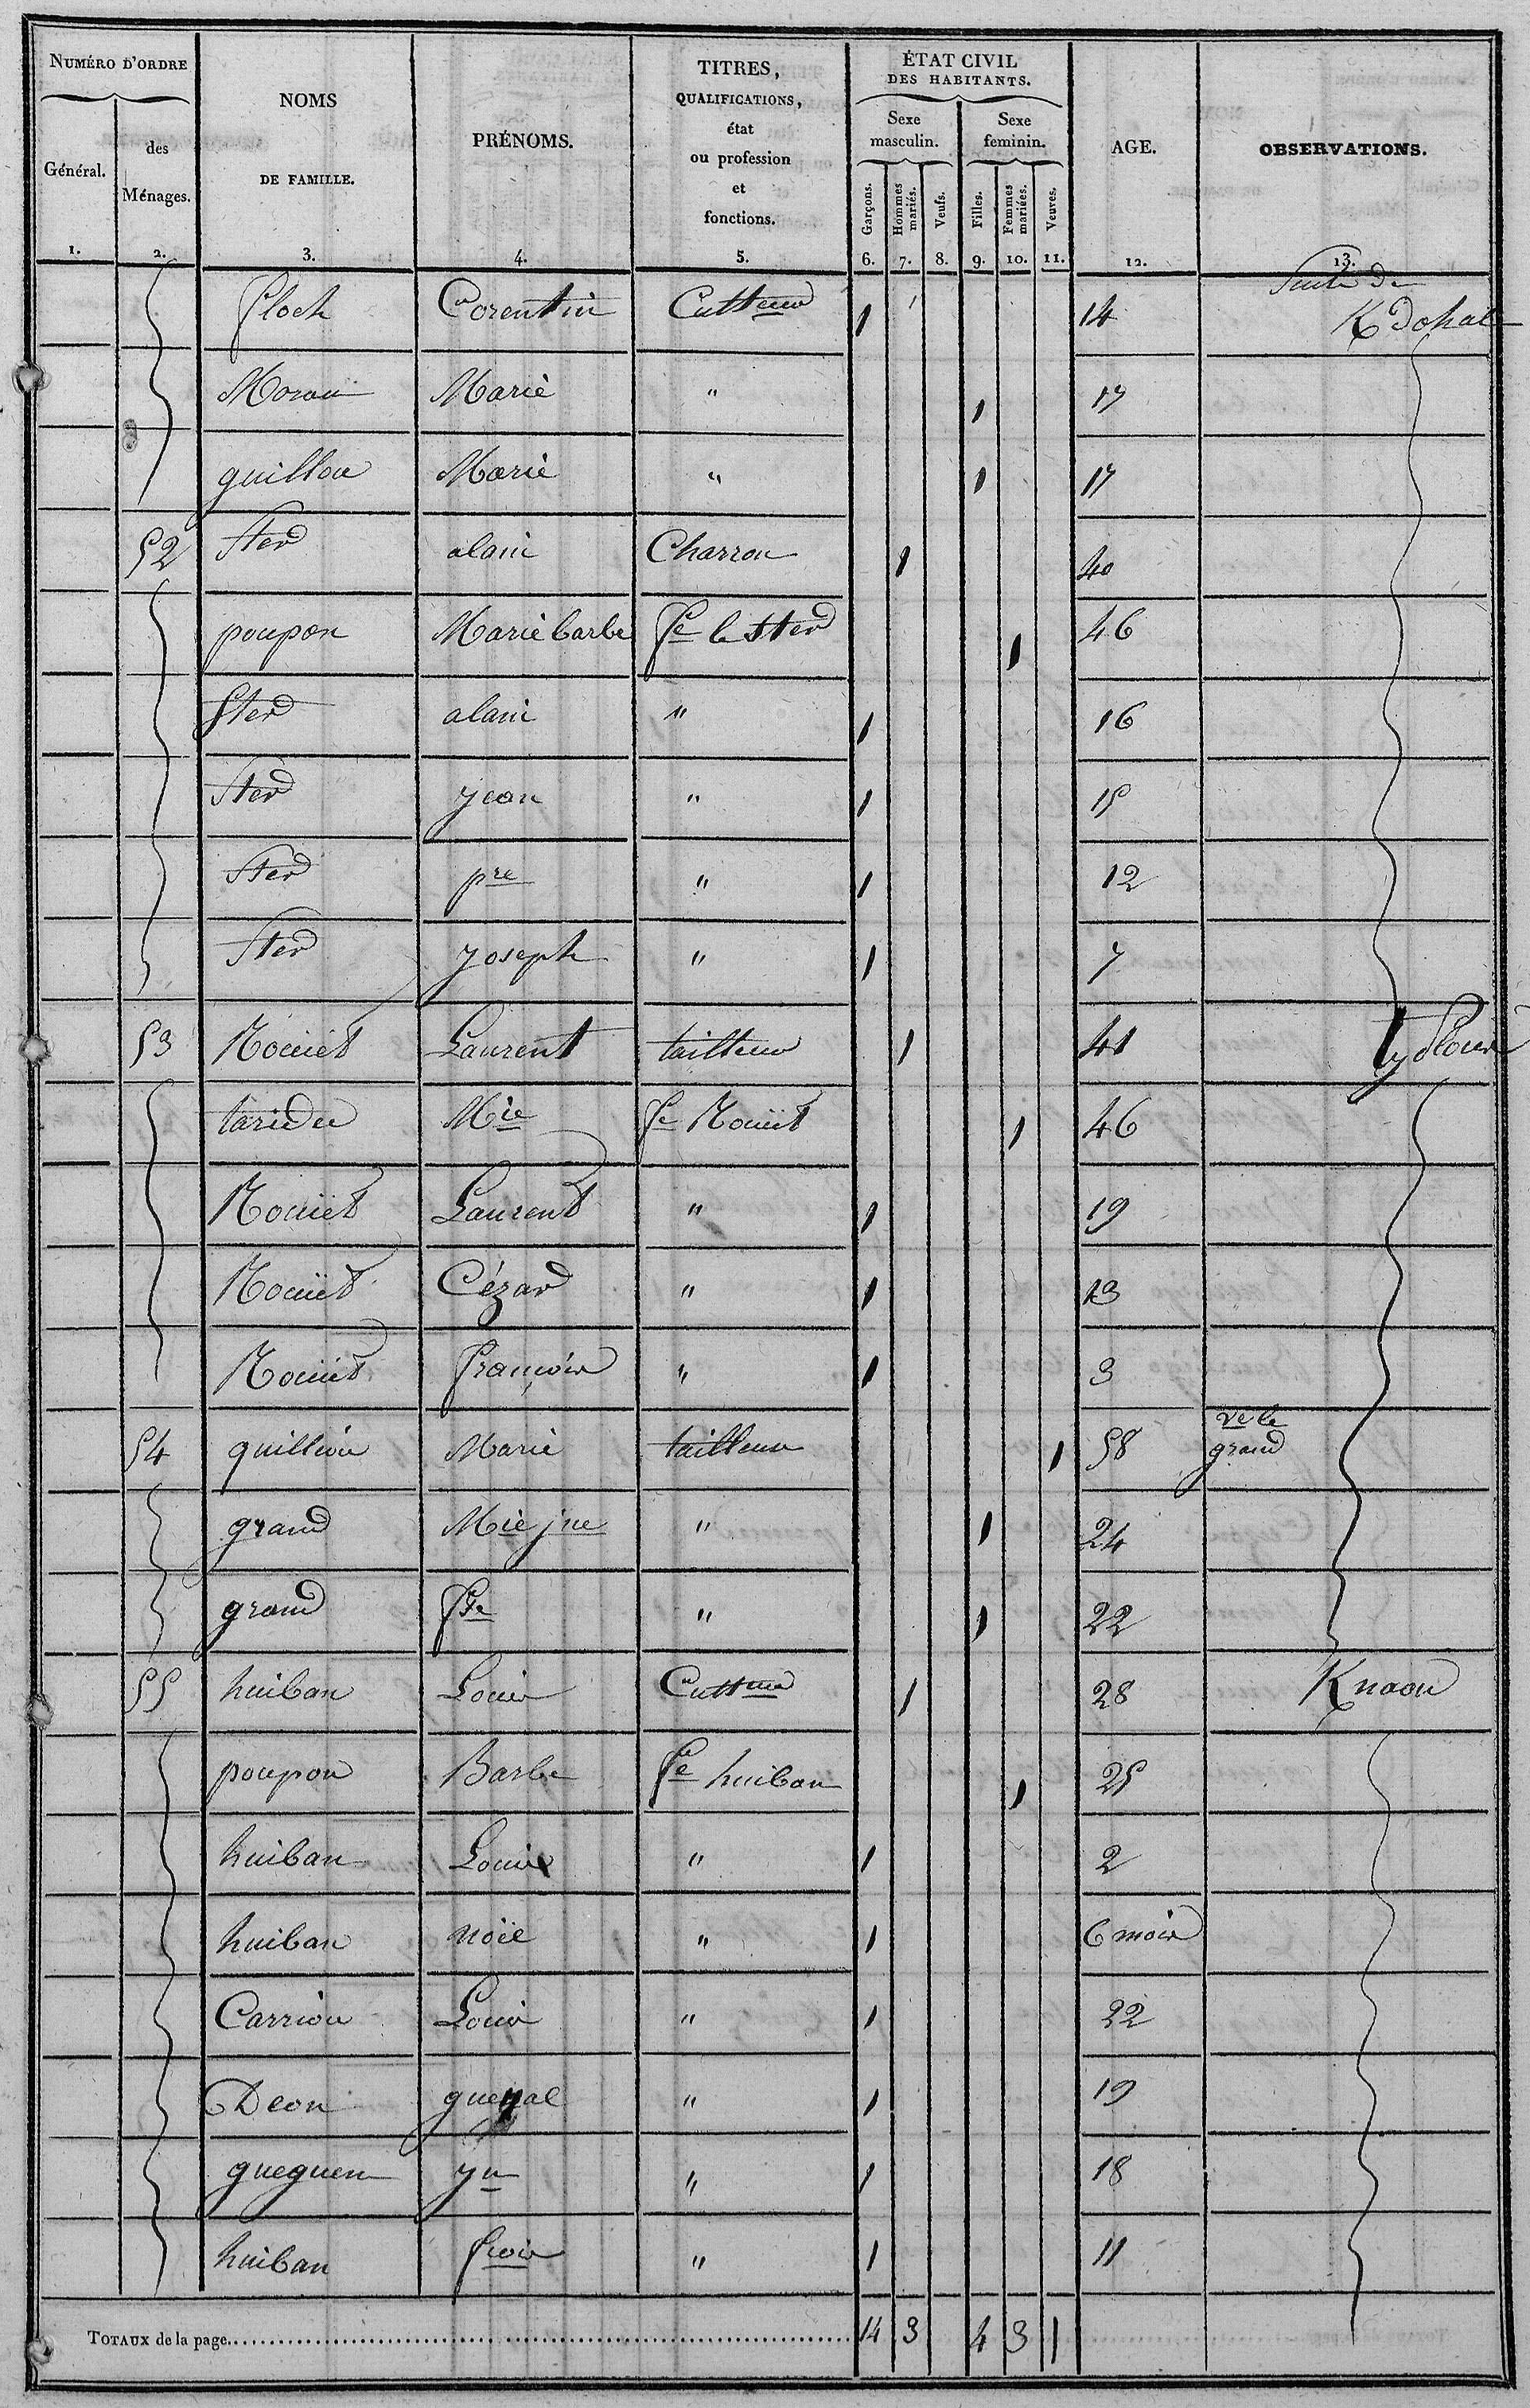 NUMÉRO D'ORDRE
Général.
des
Ménages.
NOMS
DE FAMILLE.
PRÉNOMS.
TITRES,
QUALIFICATIONS,
état
ou profession
et
fonctions.
ÉTAT CIVIL
DES HABITANTS.
Sexe
masculin.
Sexe
feminin.
Garçons.
Hommes
mariés.
Veufs.
Filles.
Femmes
mariées.
Veuves.
AGE.
OBSERVATIONS.
1. 2. 3. 4. 5. 6. 7. 8. 9. 10. 11. 12. 13.
Suite de
floch Corentin Cultteur 1 14 K dohal
Morau Marie " 1 17
guillou Marie " 1 17
52 Ster alain Charron 1 40
poupon Marie barbe fe le Ster 1 46
Ster alain " 1 16
Ster jean " 1 15
Ster pre " 1 12
Ster joseph " 1 7
53 Rouiet Laurent tailleur 1 41
taridec Mie fe Rouiet 1 46
Rouiet Laurent " 1 19
Rouiet Cézar " 1 13
Rouiet françois " 1 3
54 guilliou Marie tailleur 1 58 ve le
grand
grand Mie jne " 1 24
grand fse " 1 22
55 huiban Louis Cultteur 1 28 Knaou
poupon Barbe fe huiban 1 25
huiban Louis " 1 2
huiban noël " 1 6 mois
Carriou Louis " 1 22
Deon guenal " 1 19
gueguen yn " 1 18
huiban frois " 1 11
TOTAUX de la page 14 3 4 3 1